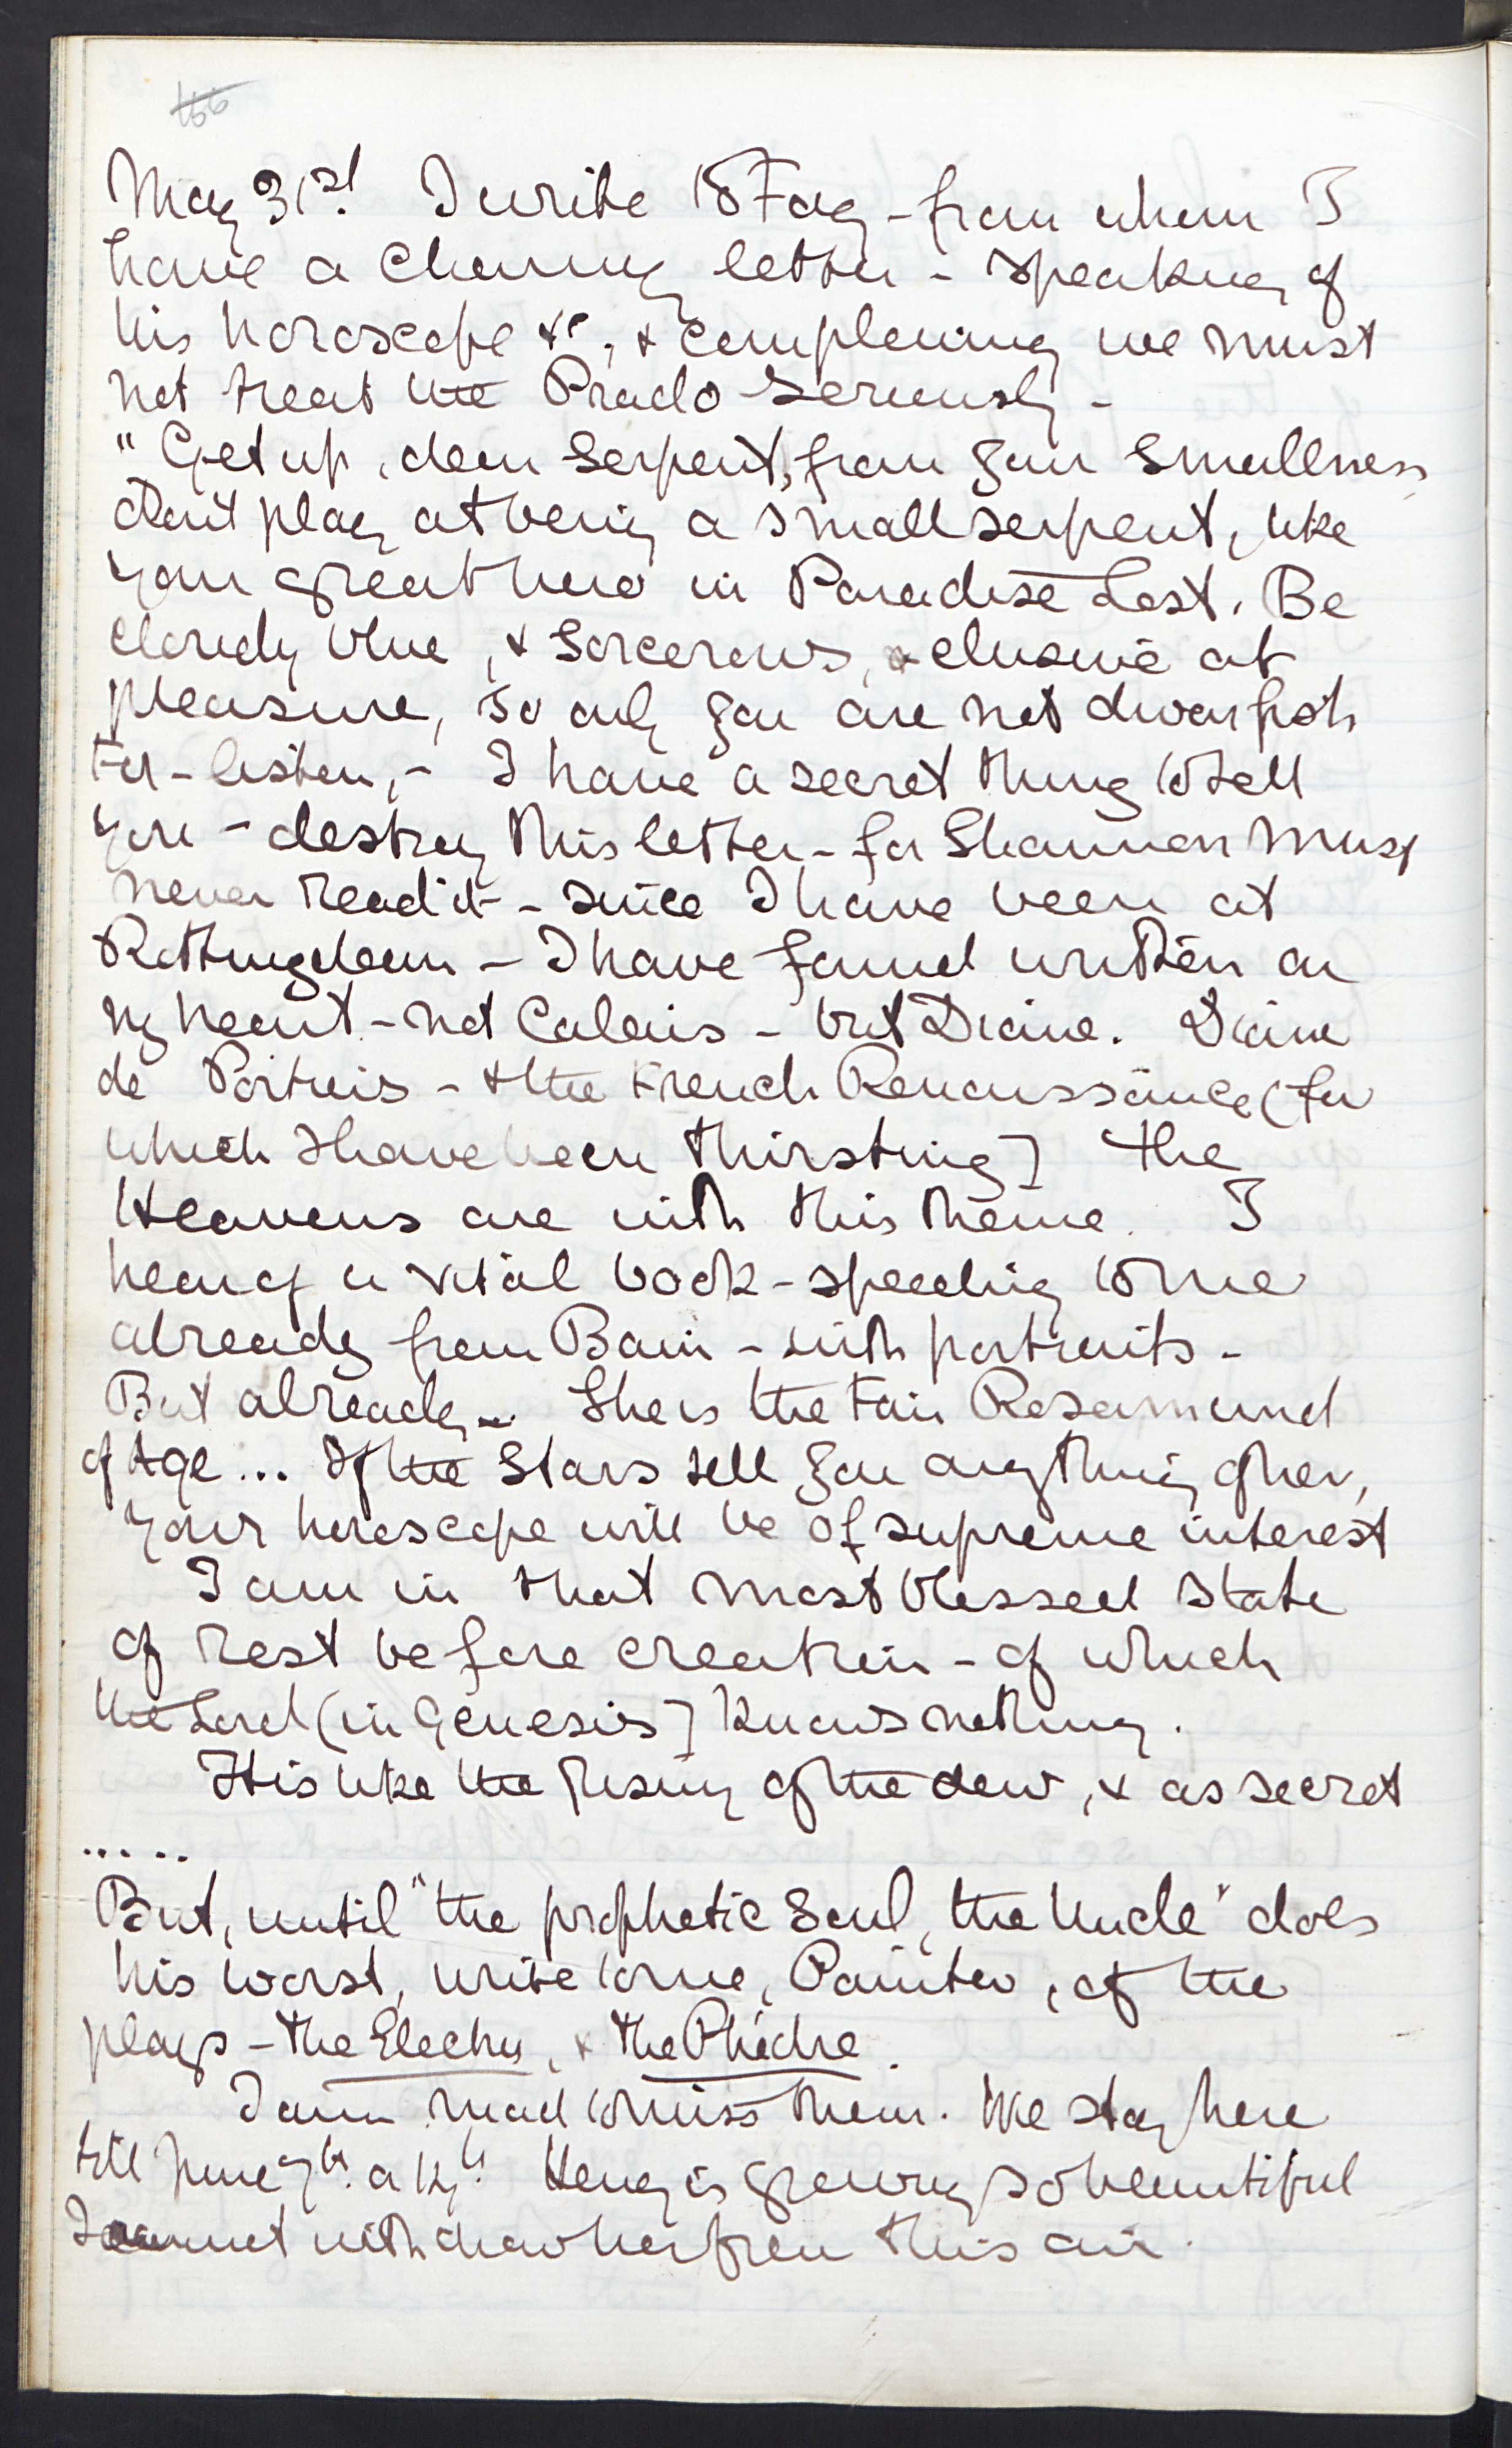 166
May 31st. I write to Fay - from whom I
have a charming letter - speaking of
his horoscope &c, & complaining we must
not treat the Prado seriously -
"Get up, dear Serpent, from your smallness
don't play at being a small serpent, like
your great hero in Paradise Lost. Be
cloudy blue, & sorcerous, & elusive at
pleasure, so only you are not dwarfish
For - listen, - I have a secret thing to tell
you - destroy this letter - for Shannon must
never read it - since I have been at
Rottingdean - I have found written on
my heart - not Calais - but Diane. Diane
de Poitiers - & the French Renaissance (for
which I have been thirsting) the
Heavens are with this theme. I
hear of a vital book - speeding to me
already from Bain - with portraits -
But already - She is the Fair Rosamund
of Age ... If the Stars tell you anything of her,
your horoscope will be of supreme interest
I am in that most blessed state
of rest before creation - of which
the Lord (in Genesis) knows nothing.
It is like the rising of the dew, & as secret
.....
But, until "the prophetic Soul, the Uncle" does
his worst, write to me, Painter, of the
plays - the Electra, & the Phèdre.
I am mad to miss them. We stay here
till June 7th. or 14th. Heny is growing so beautiful
I cannot withdraw her from this air.